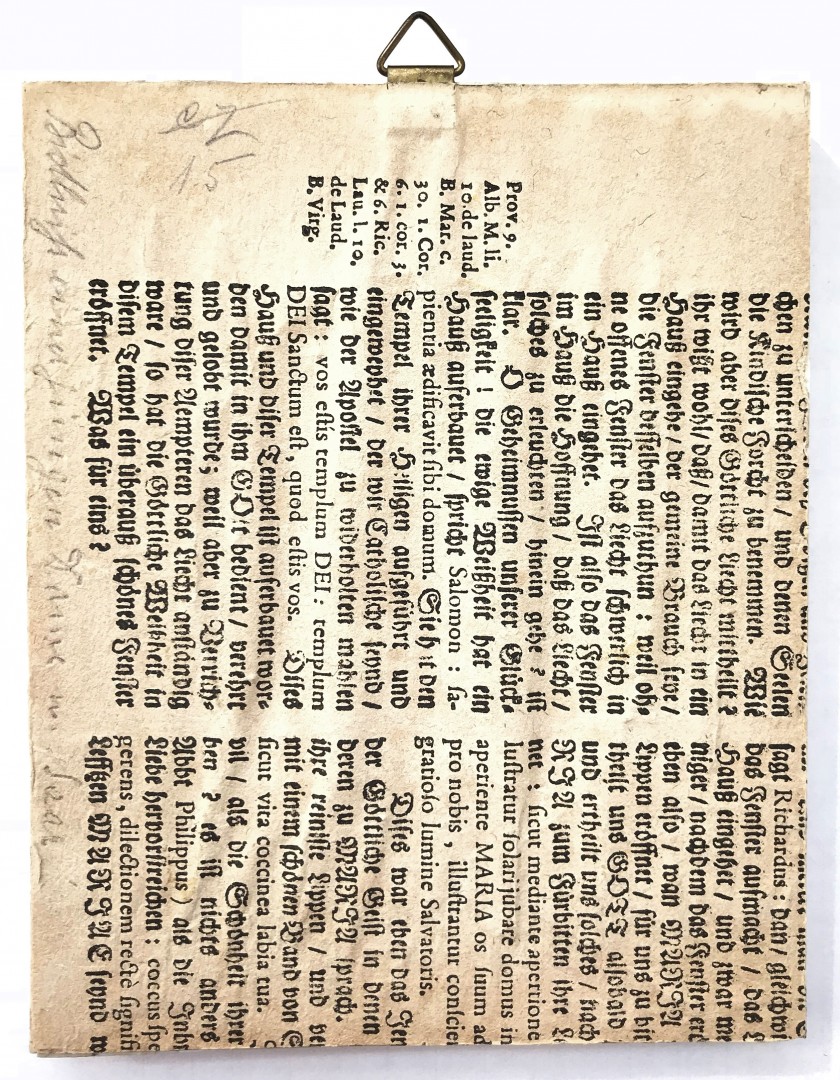 15
Bildniß einer jungen Dame m.
Prov. 9.
Alb. M. li.
10. de laud.
B. Mar. c.
30. 1. Cor.
6. 1. cor. 3.
& 6. Ric.
Lau. l. 10.
de Laud.
B. Virg.
chen zu unterſcheiden / und denen Seelen
die Kindiſche Forcht zu benemmen. Wie
wird aber diſes Göttliche Liecht mitgetheilt ?
ihr wißt wohl / daß / damit das Liecht in ein
Hauß eingehe / der gemeine Brauch ſeye /
die Fenſter deſſelben aufzuthun : weil oh-
ne offenes Fenſter das Liecht ſchwerlich in
ein Hauß eingehet. Iſt alſo das Fenſter
im Hauß die Hoffnung / daß das Liecht /
ſolches zu erleuchten / hinein gehe ? iſt
klar. O Geheimnuſſen unſerer Glück-
ſeeligkeit ! die ewige Weißheit hat ein
Hauß auferbauet / ſpricht Salomon : ſa-
pientia ædificavit ſibi domum. Sie hat den
Tempel ihrer Heiligen aufgeführt und
eingeweyhet / der wir Catholiſche ſeynd /
wie der Apoſtel zu widerholten mahlen
ſagt : vos eſtis templum DEI : templum
DEI Sanctum eſt, quod eſtis vos. Diſes
Hauß und diſer Tempel iſt auferbauet wor-
den damit in ihm GOtt bedient / verehrt
und gelobt wurde ; weil aber zu Verrich-
tung diſer Aempteren das Liecht anſtändig
ware / ſo hat die Göttliche Weißheit in
diſem Tempel ein überauß ſchönes Fenſter
eröffnet. Was für eins ?
ſagt Richardus : dan / gleichwi
das Fenſter aufmacht / das L
Hauß eingehet / und zwar me
niger / nachdem das Fenſter erö
eben alſo / wan MARIA
Lippen eröffnet / für uns zu bit
theilt uns GOTT alſobald
und ertheilt uns ſolches / nach
RIA zum Fürbitten ihre Li
net : ſicut mediante apertione
luſtratur ſolari jubare domus in
aperiente MARIA os ſuum ad
pro nobis, illuſtrantur conſcien
gratioſo lumine Salvatoris.
Diſes war eben das Jen
der Göttliche Geiſt in denen
deren zu MARIA ſprach.
ihre reiniſte Lippen / und ve
mit einem ſchönen Band von S
ſicut vita coccinea labia tua.
vil / als die Schönheit ihrer
ben ? es iſt nichts anders
Abbt Philippus ) als die Inbr
Liebe hervorſtreichen : coccus ſpe
gerens, dilectionem rectè ſignifi
Lefftzen MARIAE ſeynd